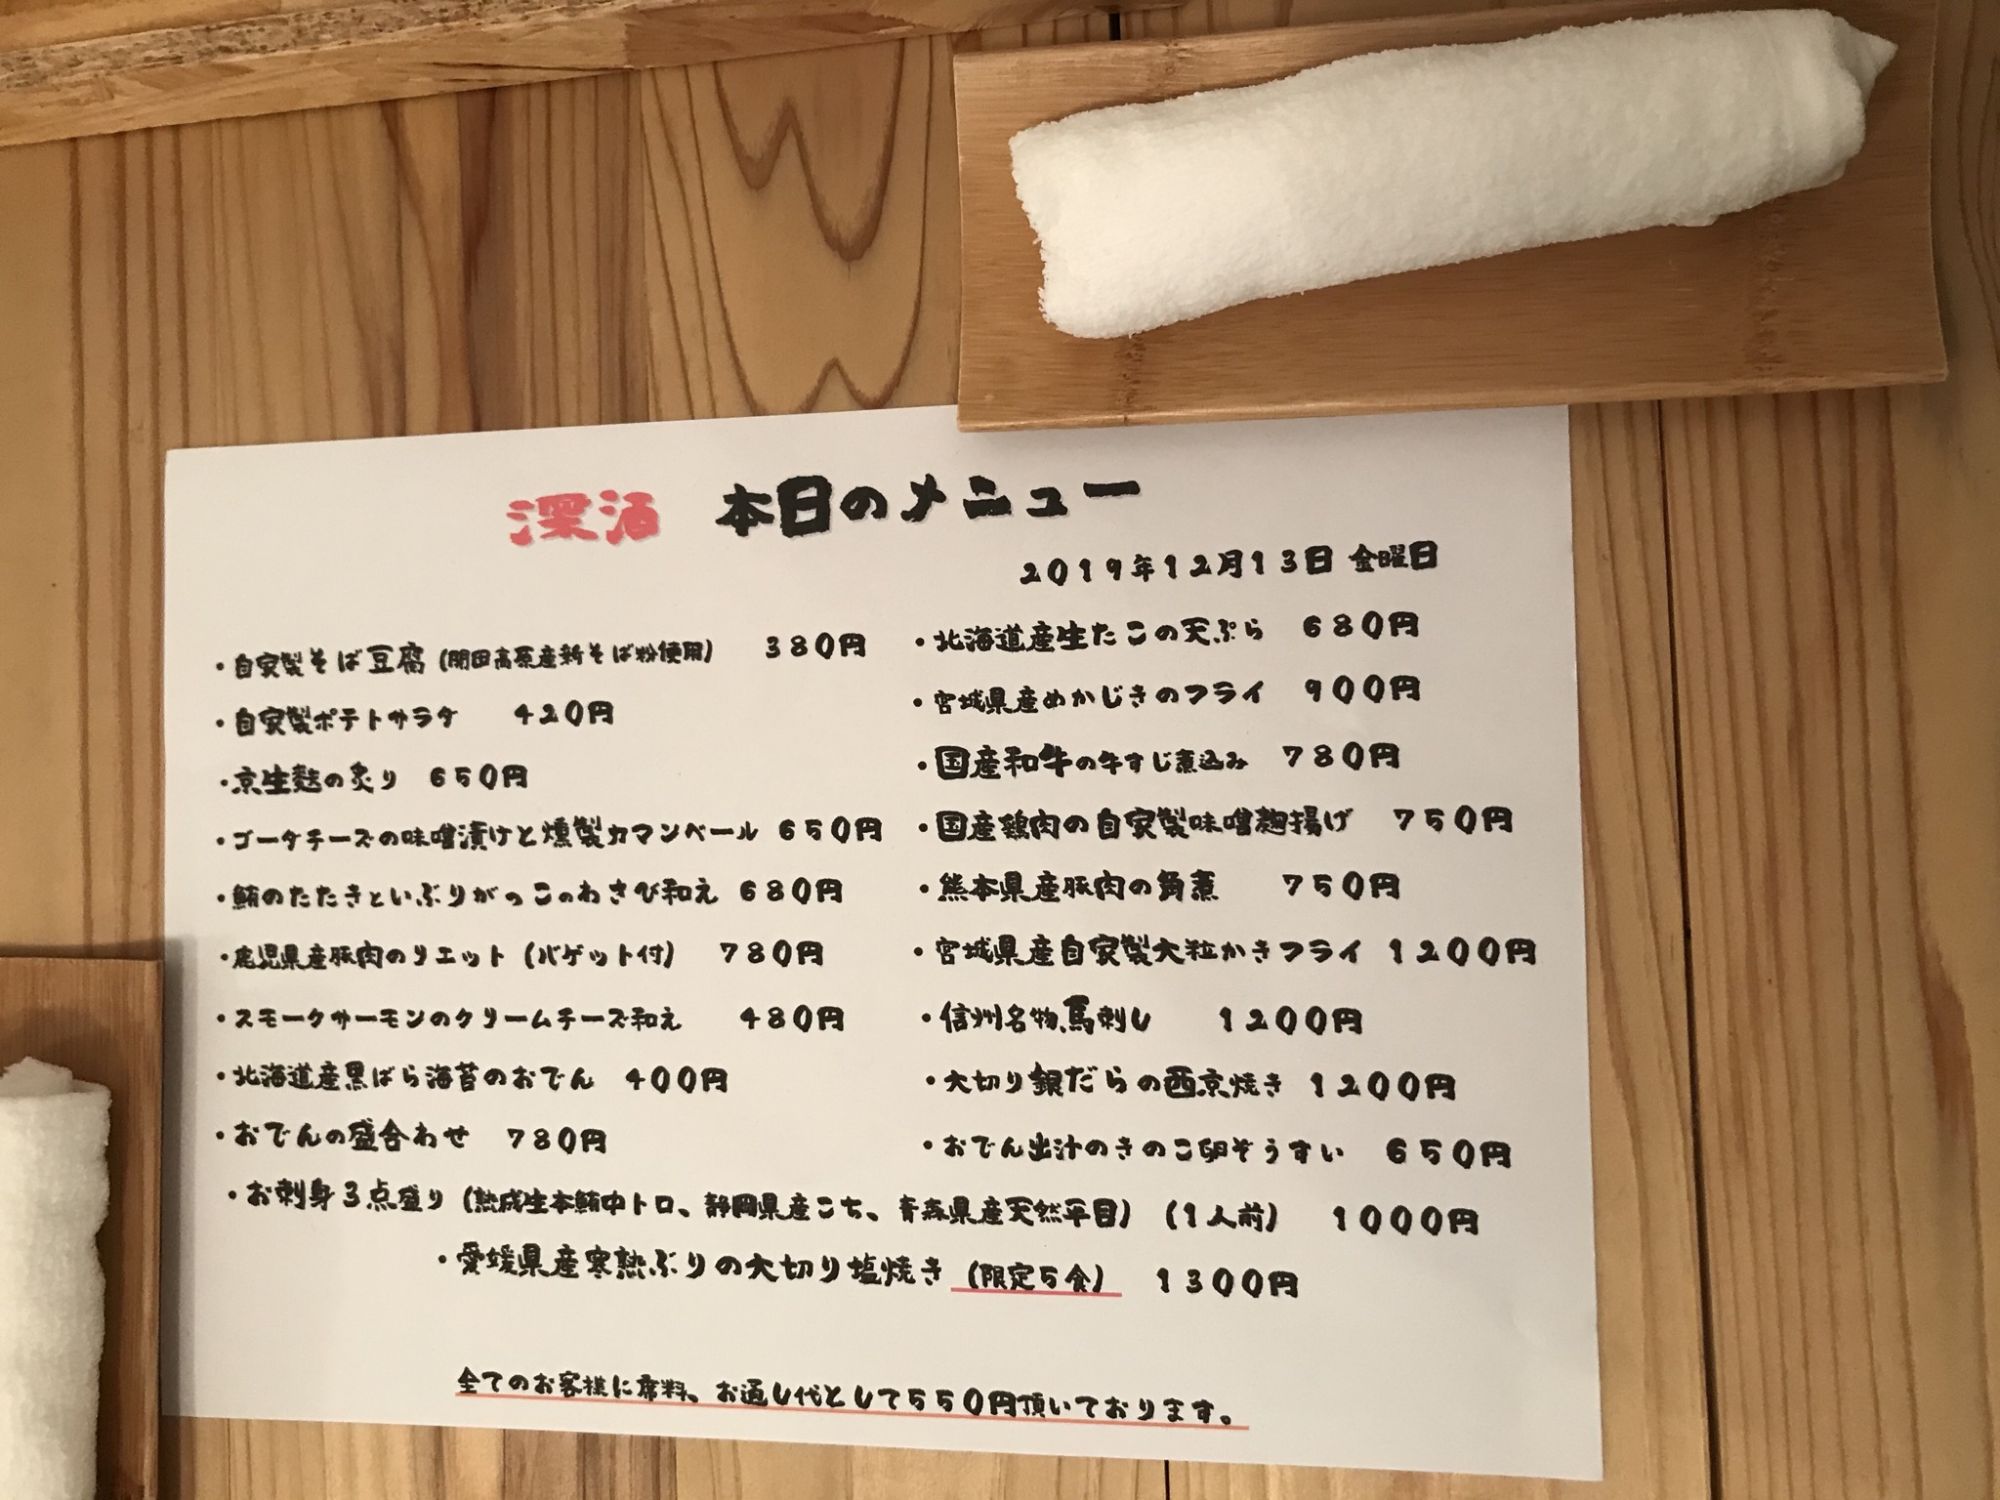 深酒 本日のメニュー
2019年12月13日 金曜日
・自家製そば豆腐(開田高原産新そば粉使用) 380円
・自家製ポテトサラダ 420円
・京生麩の炙り 650円
・ゴーダチーズの味噌漬けと燻製カマンベール 650円
・鮪のたたきといぶりがっこのわさび和え 680円
・鹿児県産豚肉のリエット(バゲット付) 780円
・スモークサーモンのクリームチーズ和え 480円
・北海道産黒ばら海苔のおでん 400円
・おでんの盛合わせ 780円
・北海道産生たこの天ぷら 680円
・宮城県産めかじきのフライ 900円
・国産和牛の牛すじ煮込み 780円
・国産鶏肉の自家製味噌麹揚げ 750円
・熊本県産豚肉の角煮 750円
・宮城県産自家製大粒かきフライ 1200円
・信州名物、馬刺し 1200円
・大切り銀だらの西京焼き 1200円
・おでん出汁のきのこ卵ぞうすい 650円
・お刺身3点盛り(熟成生本鮪中トロ、静岡県産こち、青森県産天然平目)(1人前) 1000円
・愛媛県産寒熟ぶりの大切り塩焼き(限定5食) 1300円
全てのお客様に席料、お通し代として550円頂いております。